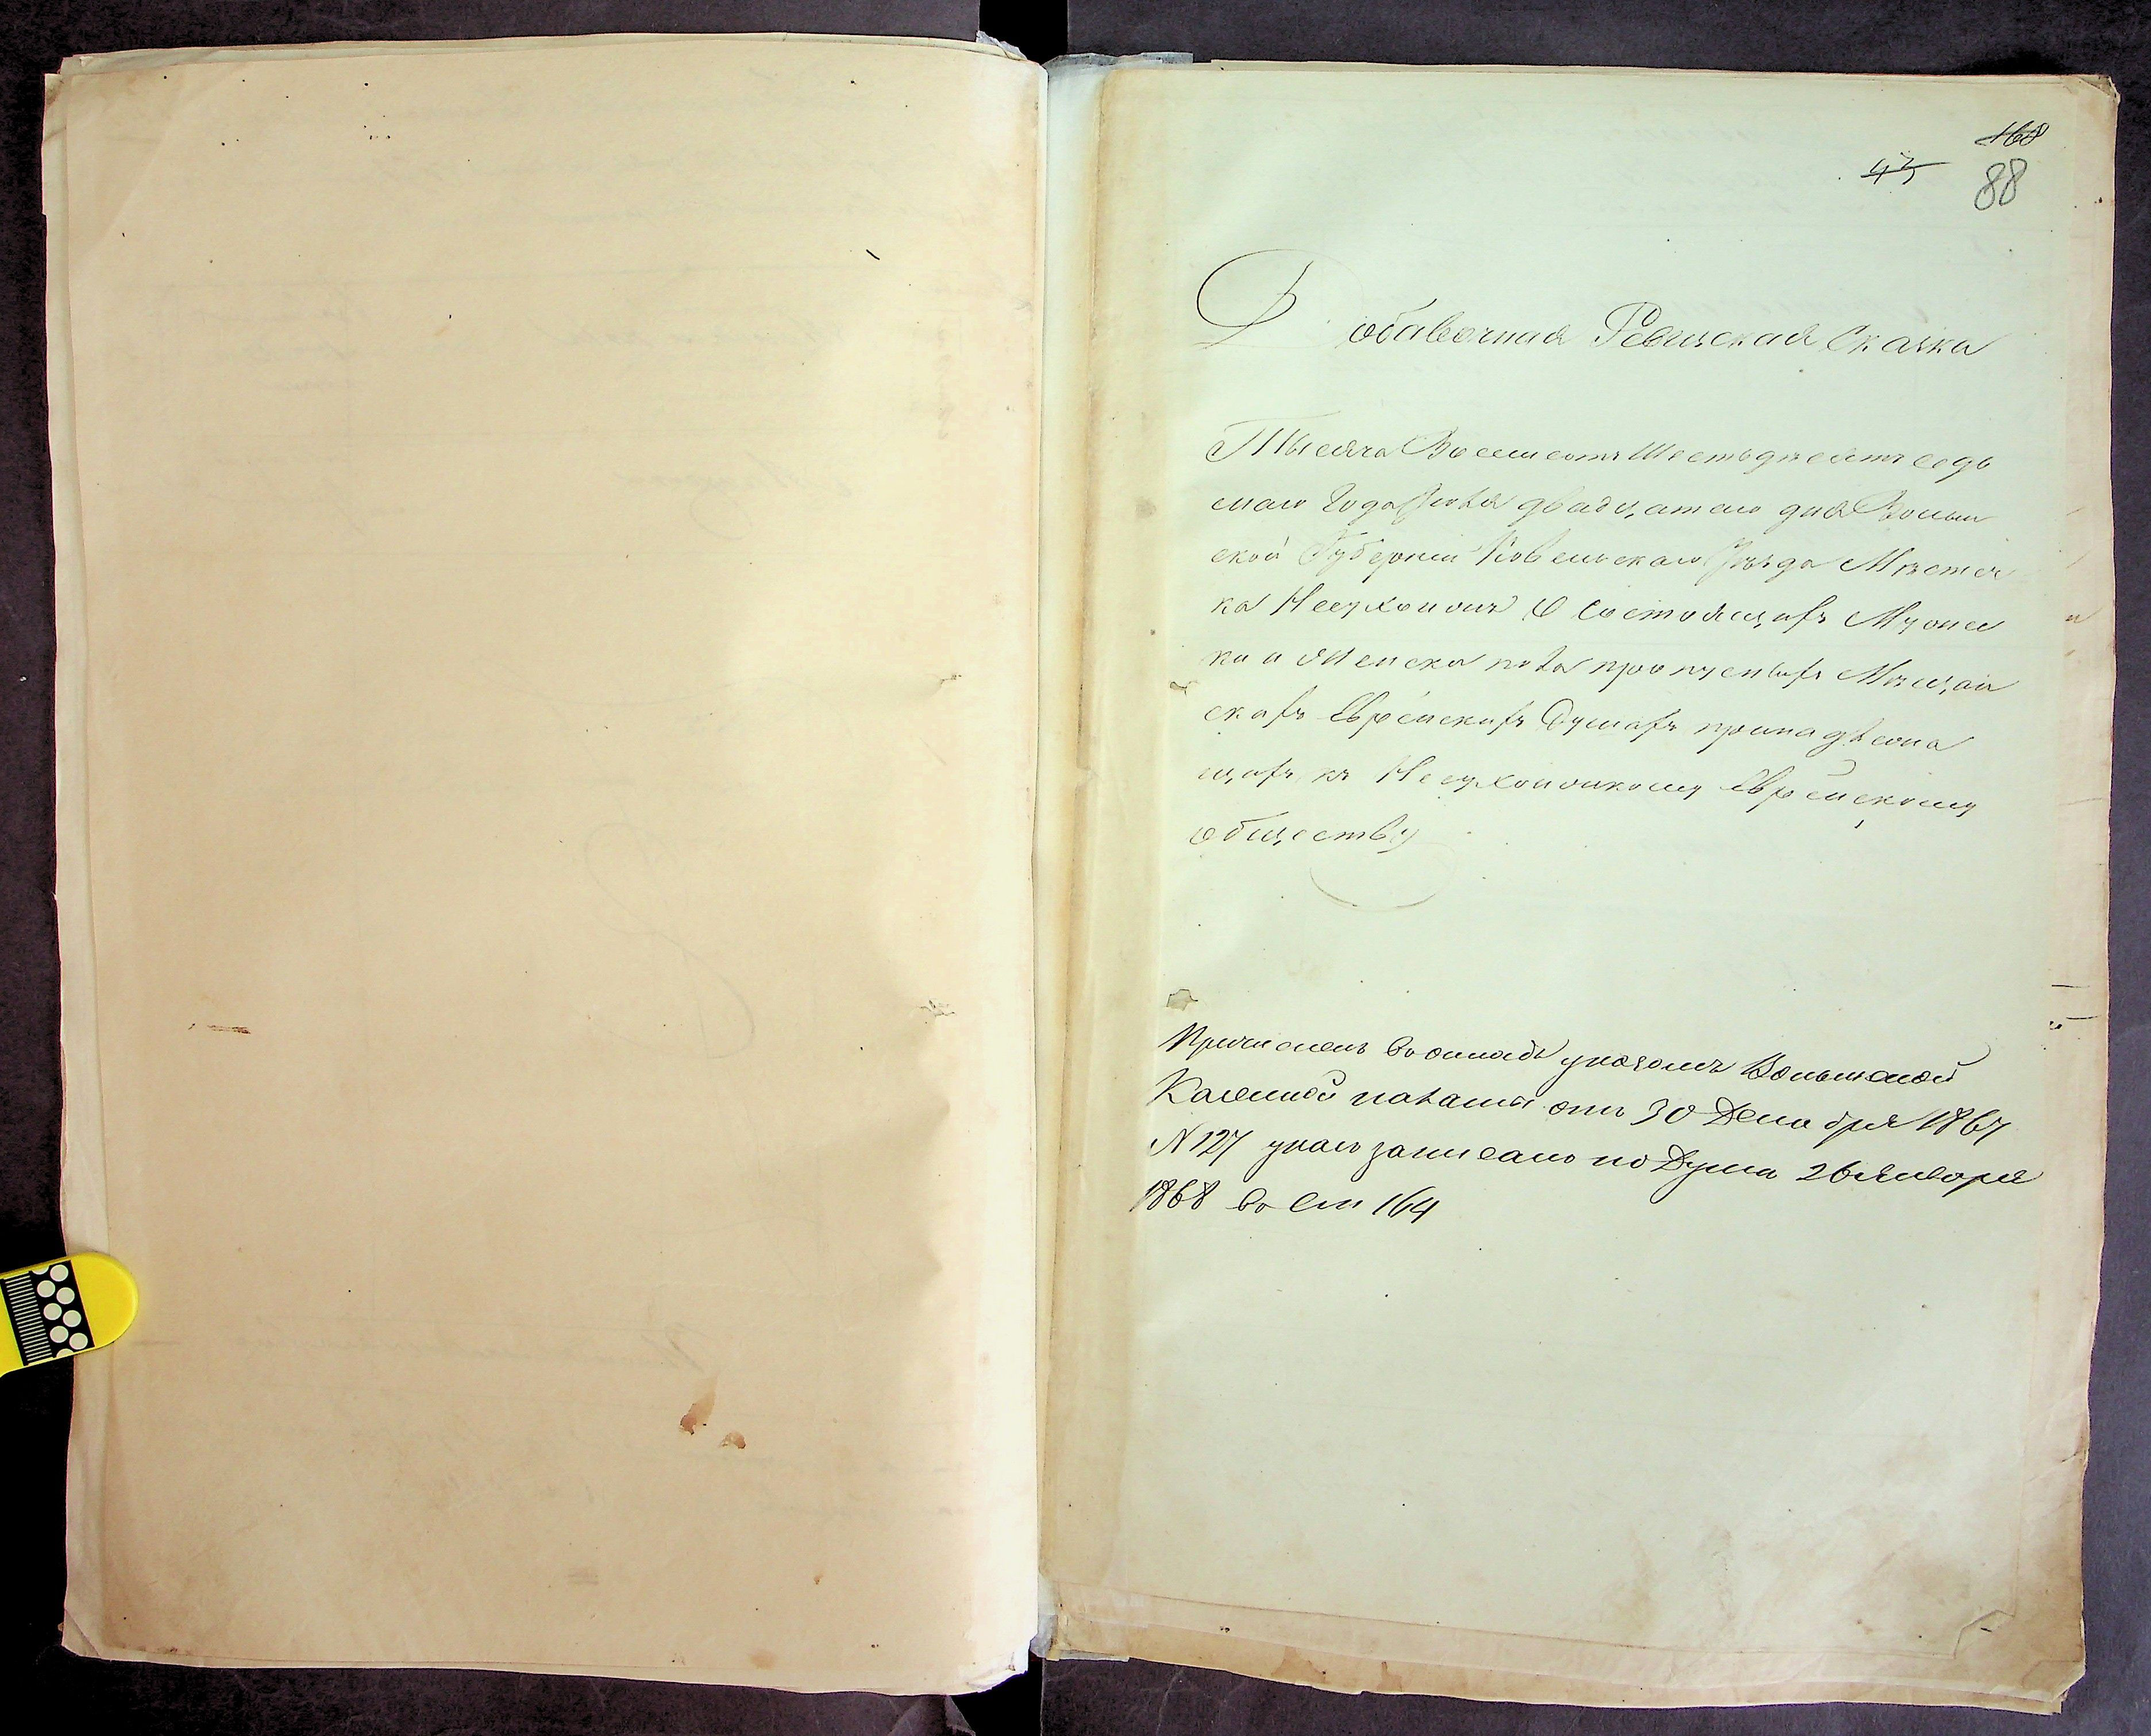 168
43
88
Добавочная Ревизская Сказка
Тысяча Восемсотъ Шестьдесятъ седь
маго Года Июля двадцатаго дня Волын
ской Губернии Ковельскаго Уѣзда Мѣстеч
ка Несухоижъ О состоящихъ Мужеск
ка и Женска пола пропущеныхъ Мѣщан
скихъ Еврейскихъ Душахъ принадлежа
щихъ къ Несухоижскому Еврейскому
обществу
Причисленъ въ окладъ указомъ Волынской
Казенной палаты отъ 30 Декабря 1867
N 127 указъ записанъ по Думы 26 Января
1868 въ ст 164